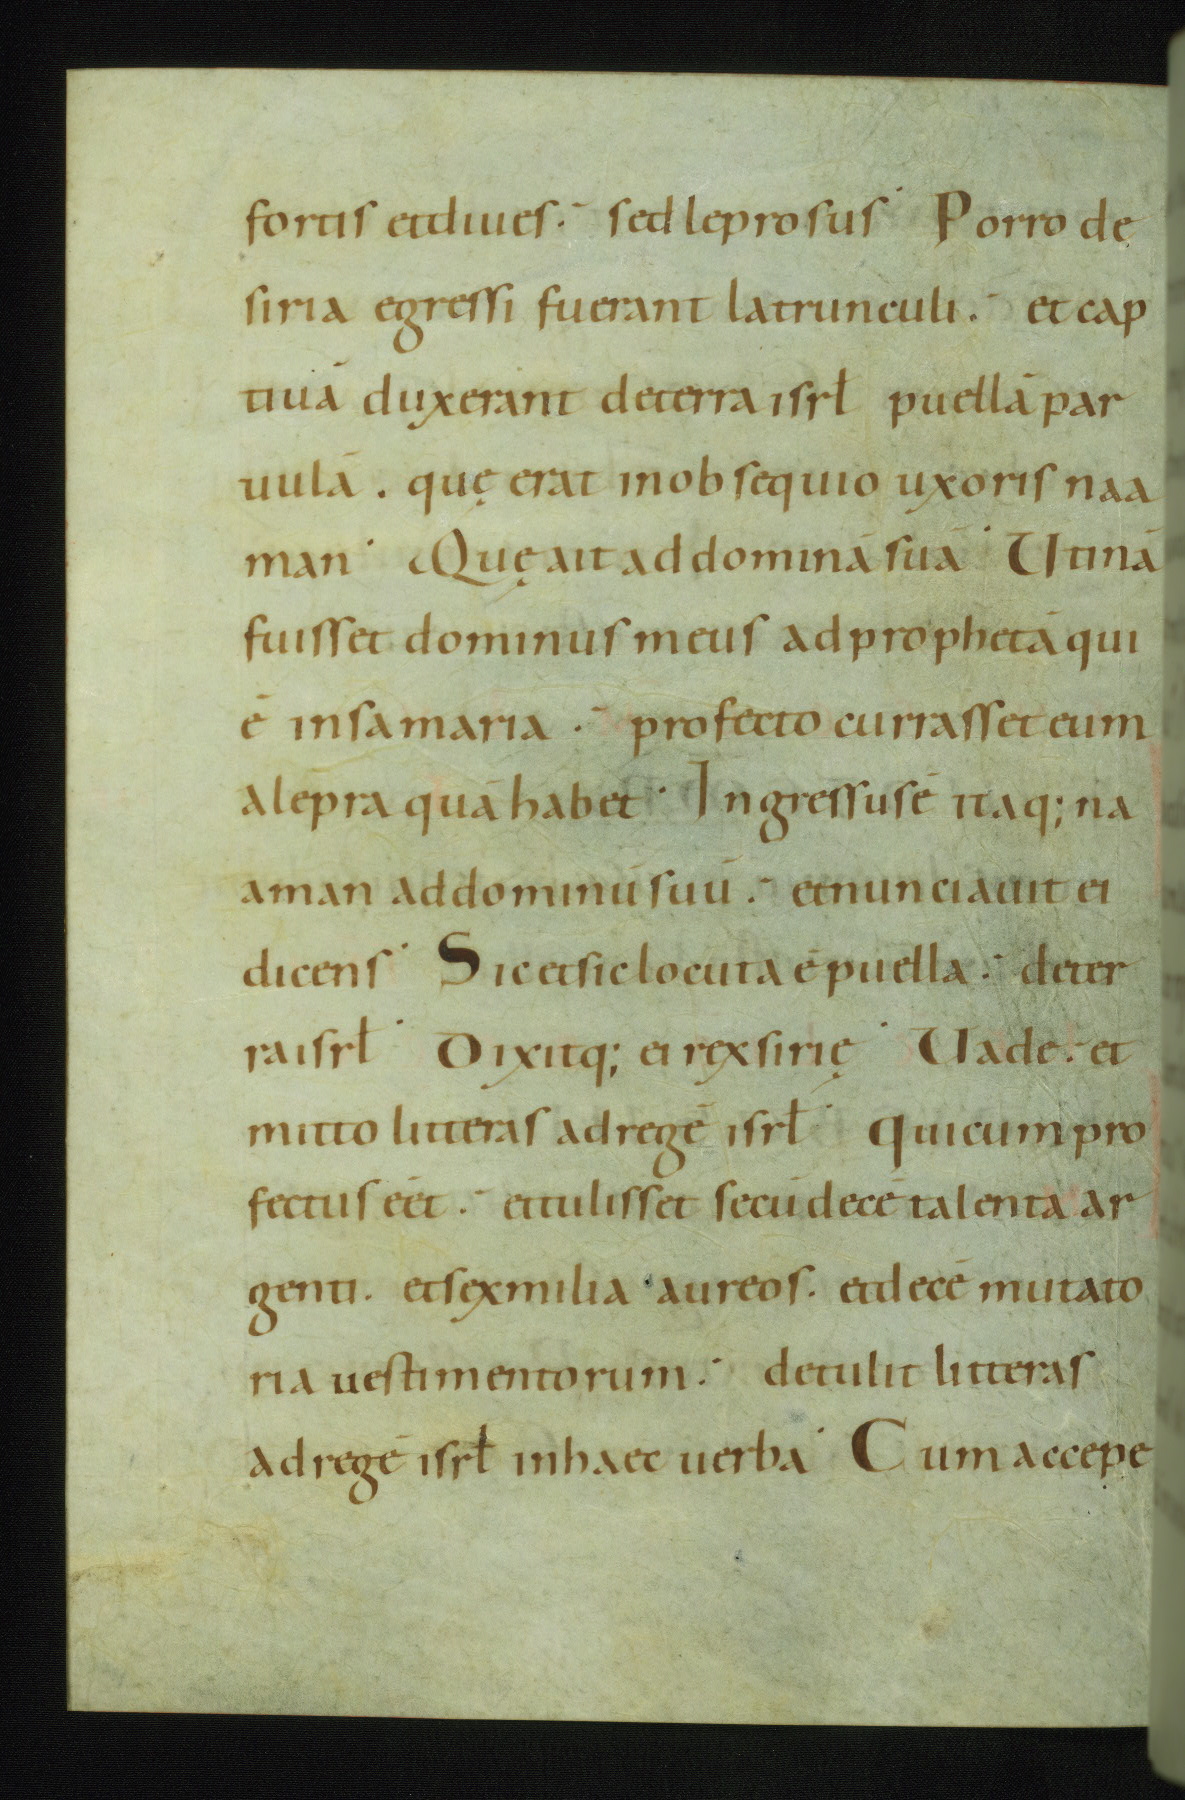 fortis et diues. sed leprosus. Porro de
siria egressi fuerant latrunculi. et cap
tiuā duxerant de terra isrł puellā par
uulā. quę erat in obsequio uxoris naa
man. Quę ait ad dominā suā. Utinā
fuisset dominus meus ad prophetā qui
ē in samaria. profecto currasset eum
a lepra quā habet. Ingressus ē itaq; na
aman ad dominū suū. et nunciauit ei
dicens. Sic et sic locuta ē puella. de ter
ra isrł. Dixitq; ei rex sirię. Uade. et
mitto litteras ad regē isrł. Qui cum pro
fectus eēt. et tulisset secū decē talenta ar
genti. et sex milia aureos. et decē mutato
ria uestimentorum. detulit litteras
ad regē isrł in haec uerba. Cum accepe